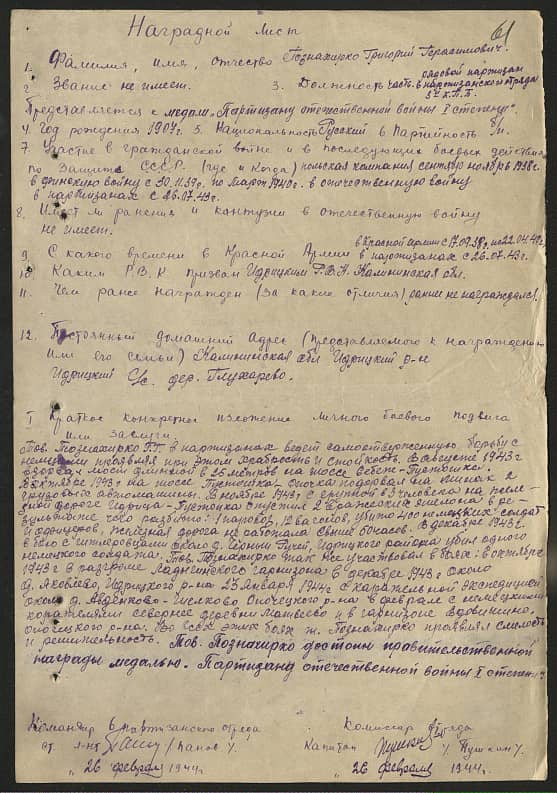 61
Наградной лист
1. Фамилия, имя, отчество Познахирко Григорий Герасимович.
2. Звание не имеет. 3. Должность часть рядовой партизан в партизанском отряде
Представляется к медали "Партизану отечественной войны I степени".
4. Год рождения 1907г. 5. Национальность Русский 6 Партийность б/п.
7. Участие в гражданской войне и в последующих боевых действиях
по защите СССР (где и когда) польская компания сентябрь ноябрь 1938г.
в финскую войну с 30.11.39г. по Март 1940г. в отечественную войну
в партизанах с 26.07.43г.
8. Имеет ли ранения и контузии в отечественную войну
не имеет.
9. С какого времени в Красной Армии в Красной армии с 17.09.38г. по 22.04.40г. в партизанах с 26.07.43г.
10. Каким Р.В.К. призван Идрицким Р.В.К. Калининская обл.
11. Чем ранее награжден (за какие отличия) ранее не награждался.
12. Постоянный домашний адрес (представляемого к награждению
или его семьи) Калининская обл Идрицкий р-н
Идрицкий С/с. дер. Глухарево.
I Краткое конкретное изложение личного боевого подвига
или заслуги
Тов. Познахирко Г.Г. в партизанах ведет самоотверженную борьбу с
немцами проявляя при этом храбрость и стойкость. В августе 1943г
взорвал мост длинной в 25 метров на шоссе Себеж-Пустошка.
В октябре 1943г на шоссе Пустошка-Опочка подорвал на минах 2
грузовых автомашины. В ноябре 1943г с группой в 3 человека на желез-
ной дороге Идрица-Пустошка спустил 2 вражеских эшелона в ре-
зультате чего разбито: 1 паровоз, 12 вагонов, убито немецких солдат
и офицеров, железная дорога не работала свыше часов. В декабре 1943г.
в бою с гитлеровцами около д. Идрицкого района убил одного
немецкого солдата. Тов. Познахирко так же участвовал в боях: в октябре
1943г в разгроме гарнизона в декабре 1943г около
д. Яковлево, Идрицкого р-на 23 января 1944г с карательной экспедицией
около д. Авденково-Числово Опочецкого р-на в феврале с немецкими
карателями севернее деревни Матвеево и в гарнизоне Вдовкино.
Опочецкого р-на. Во всех этих боях т. Познахирко проявлял смелость
и решительность. Тов. Познахирко достоин правительственной
награды медалью. Партизану отечественной войны I степени.
Командир 6 партизанского отряда Комиссар отряда
ст. л-нт /Панов/ Капитан /Пушкин/
"26 февраля 1944г. "26 февраля 1944г.